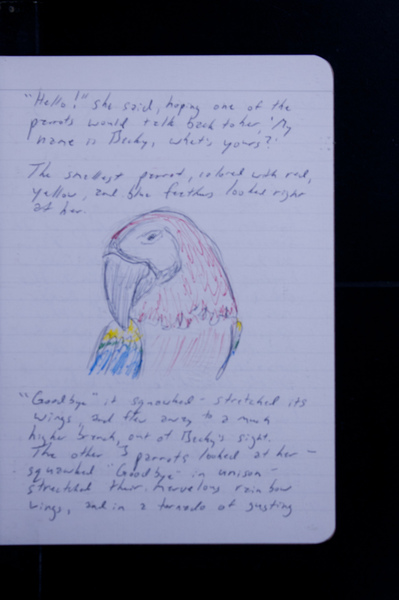 "Hello!" she said, hoping one of the
parrots would talk back to her, "My
name is Becky, what's yours?"
The smallest parrot, colored with red,
yellow, and blue feathers looked right
at her.
"Goodbye" it squawked - stretched its
wings, and flew away to a much
higher branch, out of Becky's sight.
The other 3 parrots looked at her -
squawked "Goodbye" in unison -
stretched their marvelous rainbow
wings, and in a tornado of gusting